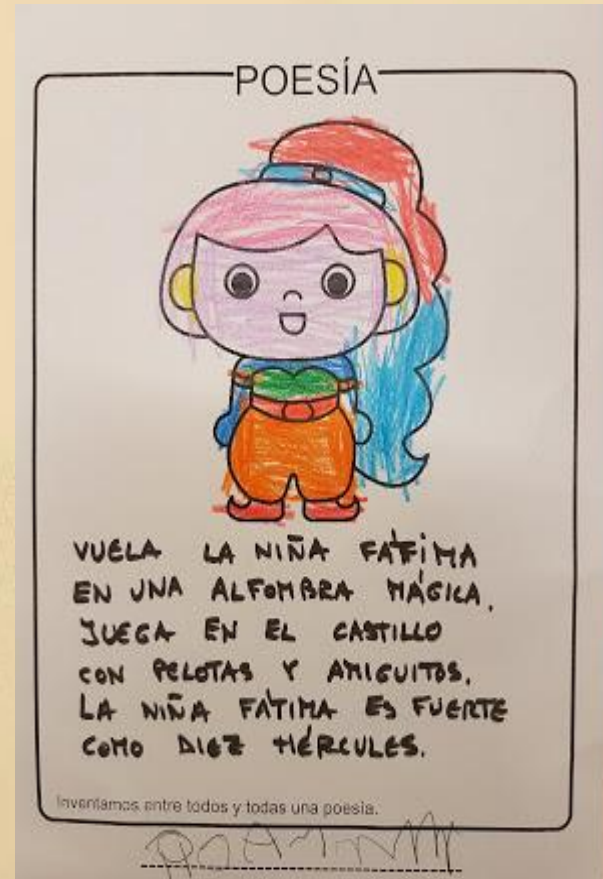 POESÍA
VUELA LA NIÑA FÁTIMA
EN UNA ALFOMBRA MÁGICA.
JUEGA EN EL CASTILLO
CON PELOTAS Y AMIGUITOS.
LA NIÑA FÁTIMA ES FUERTE
COMO DIEZ HÉRCULES.
Inventamos entre todos y todas una poesía.